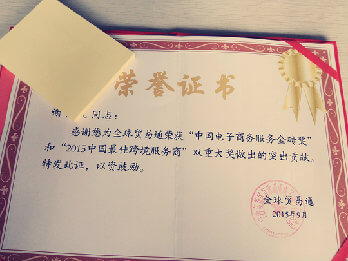 荣誉证书
同志：
感谢您为全球贸易通荣获“中国电子商务服务金砖奖”
和“2015中国最佳跨境服务商”双重大奖做出的突出贡献。
特发此证，以资鼓励。
全球贸易通
2015年9月